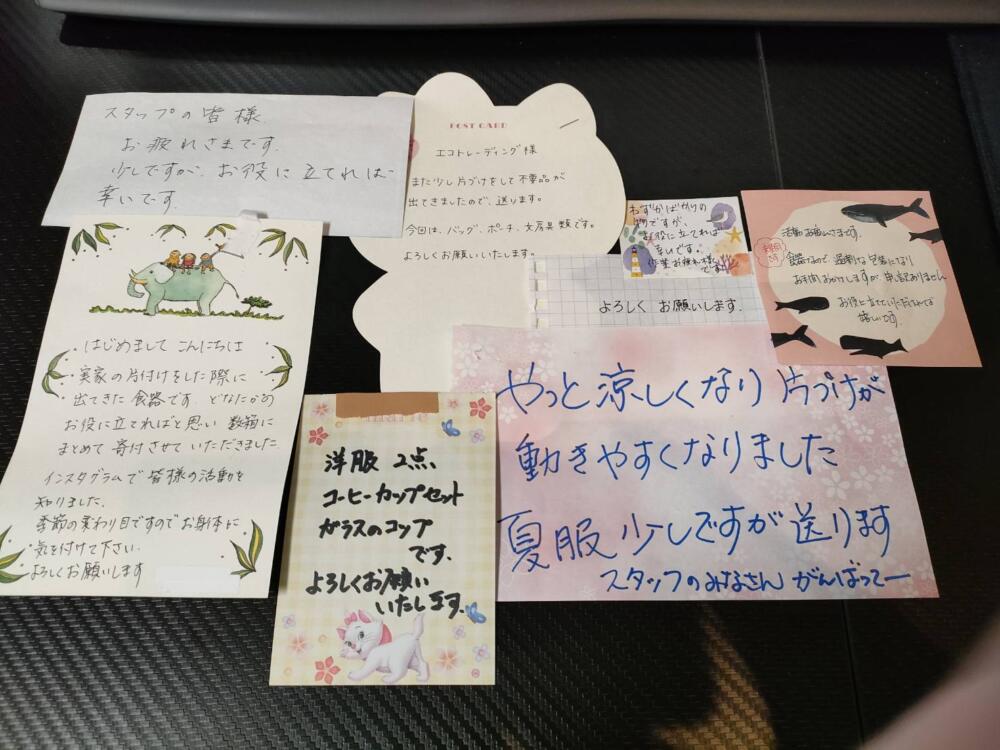 スタップの皆様
お疲れさまです。
少しですが、お役に立てれば
幸いです。
POST CARD
エコトレーディング様
また少し片づけをして不要品が
出てきましたので、送ります。
今回は、バッグ、ポーチ、文房具類です。
よろしくお願いいたします。
わずかばかりの
物ですが、
お役に立てれば
幸いです。
作業お疲れ様
です
よろしく お願いします.
活動お疲れさまです。
食器なので、過剰な包装になり
お手間おかけしますが 申し訳ありません
お役に立てていただければ
嬉しいです
はじめまして こんにちは
実家の片付けをした際に
出てきた食器です. どなたかの
お役に立てればと思い 数箱に
まとめて寄付させて いただきました
インスタグラムで皆様の活動を
知りました.
季節の変わり目ですのでお身体に
気を付けて下さい.
よろしくお願いします
洋服 2点、
コーヒーカップセット
ガラスのコップ
です.
よろしくお願い
いたします.
やっと涼しくなり 片づけが
動きやすくなりました
夏服 少しですが 送ります
スタッフのみなさん がんばってー